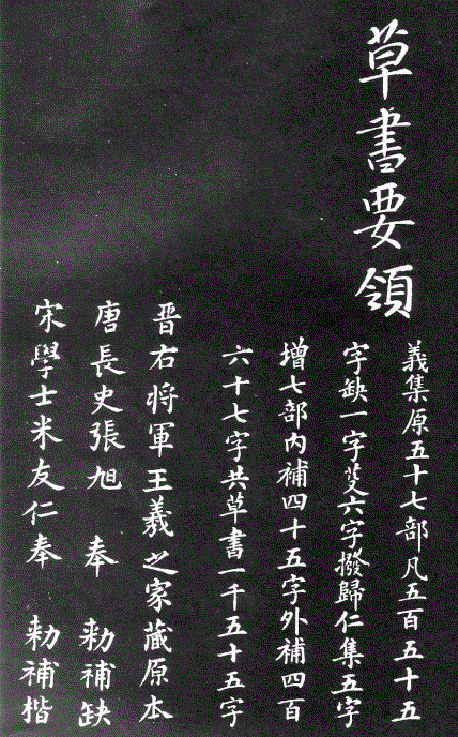 草書要領
義集原五十七部凡五百五十五
字缺一字芟六字撥歸仁集五字
增七部內補四十五字外補四百
六十七字共草書一千五十五字
晋右将軍王羲之家藏原本
唐長史張旭奉勑補缺
宋學士米友仁奉勑補楷